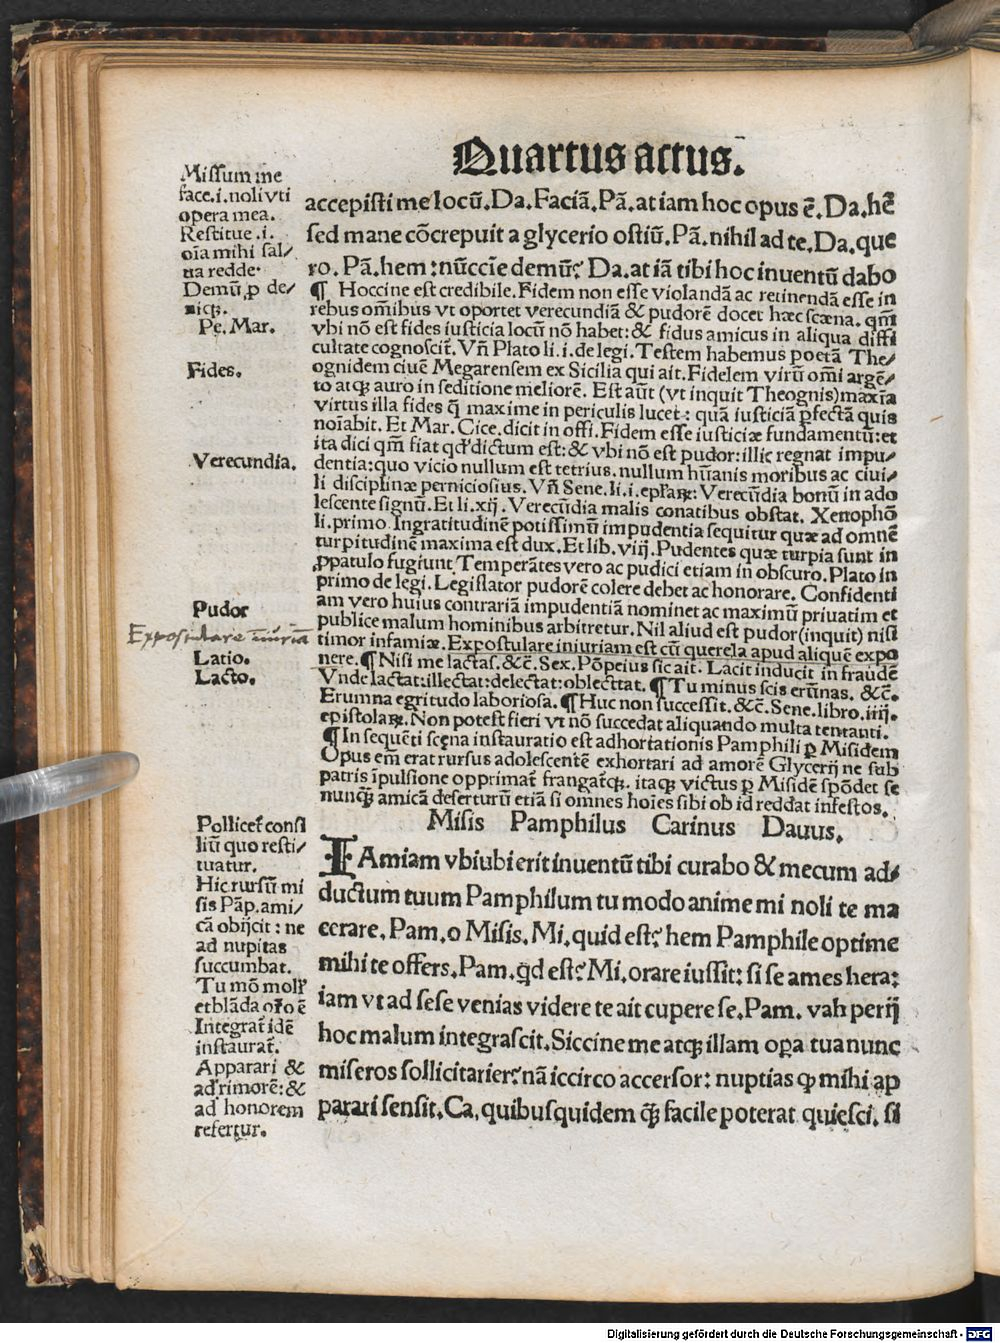 Quartus actus.
Missum me
face.i.noli vti
opera mea.
Restitue .i.
oīa mihi sal/
ua redde.
Demū ꝑ de/
nicꝫ.
Pe. Mar.
Fides.
Verecundia.
Pudor
Expostulare iniuriā
Latio.
Lacto.
accepisti me locū. Da. Faciā. Pā. at iam hoc opus ē. Da. hē
sed mane cōcrepuit a glycerio ostiū. Pā. nihil ad te. Da. que
ro. Pā. hem: nūccīe demū? Da. at iā tibi hoc inuentū dabo
¶ Hoccine est credibile. Fidem non esse violandā ac retinendā esse in
rebus om̄ibus vt oportet verecundiā & pudorē docet hæc scæna. qm̄
vbi nō est fides iusticia locū nō habet: & fidus amicus in aliqua diffi
cultate cognoscit̄. Vn̄ Plato li. i. de legi. Testem habemus poetā The/
ognidem ciuē Megarensem ex Sicilia qui ait. Fidelem virū om̄i argē/
to atqꝫ auro in seditione meliorē. Est aūt (vt inquit Theognis) maxīa
virtus illa fides q̄ maxime in periculis lucet: quā iusticiā ꝑfectā quis
noīabit. Et Mar. Cice. dicit in offi. Fidem esse iusticiæ fundamentū: et
ita dici qm̄ fiat qd̕ dictum est: & vbi nō est pudor: illic regnat impu/
dentia: quo vicio nullum est tetrius. nullum hūanis moribus ac ciui/
li disciplinæ perniciosius. Vn̄ Sene. li. i. epl̕aꝝ: Verecūdia bonū in ado
lescente signū. Et li. xij. Verecūdia malis conatibus obstat. Xenophō
li. primo. Ingratitudinē potissimū impudentia sequitur quæ ad omnē
turpitudinē maxima est dux. Et lib. viij. Pudentes quæ turpia sunt in
ꝓpatulo fugiunt Temperātes vero ac pudici etiam in obscuro. Plato in
primo de legi. Legislator pudorē colere debet ac honorare. Confidenti
am vero huius contrariā impudentiā nominet ac maximū priuatim et
publice malum hominibus arbitretur. Nil aliud est pudor (inquit) nisi
timor infamiæ. Expostulare iniuriam est cū querela apud aliquē expo
nere. ¶ Nisi me lactas. &c̄. Sex. Pōpeius sic ait. Lacit inducit in fraudē
Vnde lactat: illectat: delectat: oblecttat. ¶ Tu minus scis erūnas. &c̄.
Erumna egritudo laboriosa. ¶ Huc non successit. &c̄. Sene. libro. iiij.
epistolaꝝ. Non potest fieri vt nō succedat aliquando multa tentanti.
¶ In sequēti scęna instauratio est adhortationis Pamphili ꝑ Misidem
Opus em̄ erat rursus adolescentē exhortari ad amorē Glycerij ne sub
patris īpulsione opprimat̄ frangat̄qꝫ. itaqꝫ victus ꝑ Misidē spōdet se
nunqꝫ amicā deserturū etiā si omnes hoīes sibi ob id reddat infestos.
Misis Pamphilus Carinus Dauus.
Pollicet̄ consi
liū quo resti/
tuatur.
Hic rursū mi
sis Pāp. ami/
cā obijcit: ne
ad nuptias
succumbat.
Tu mō moll̕
et blāda or̕o ē
Integrat̄ idē
instaurat̄.
Apparari &
ad rimorē: &
ad honorem
refertur.
IAmiam vbiubi erit inuentū tibi curabo & mecum ad/
ductum tuum Pamphilum tu modo anime mi noli te ma
cerare. Pam. o Misis. Mi. quid est? hem Pamphile optime
mihi te offers. Pam. qd est? Mi. orare iussit: si se ames hera:
iam vt ad sese venias videre te ait cupere se. Pam. vah perij
hoc malum integrascit. Siccine me atqꝫ illam oꝑa tua nunc
miseros sollicitarier? nā iccirco accersor: nuptias ꝙ mihi ap
parari sensit. Ca. quibus quidem qꝫ facile poterat quiesci. si
Digitalisierung gefördert durch die Deutsche Forschungsgemeinschaft - DFG